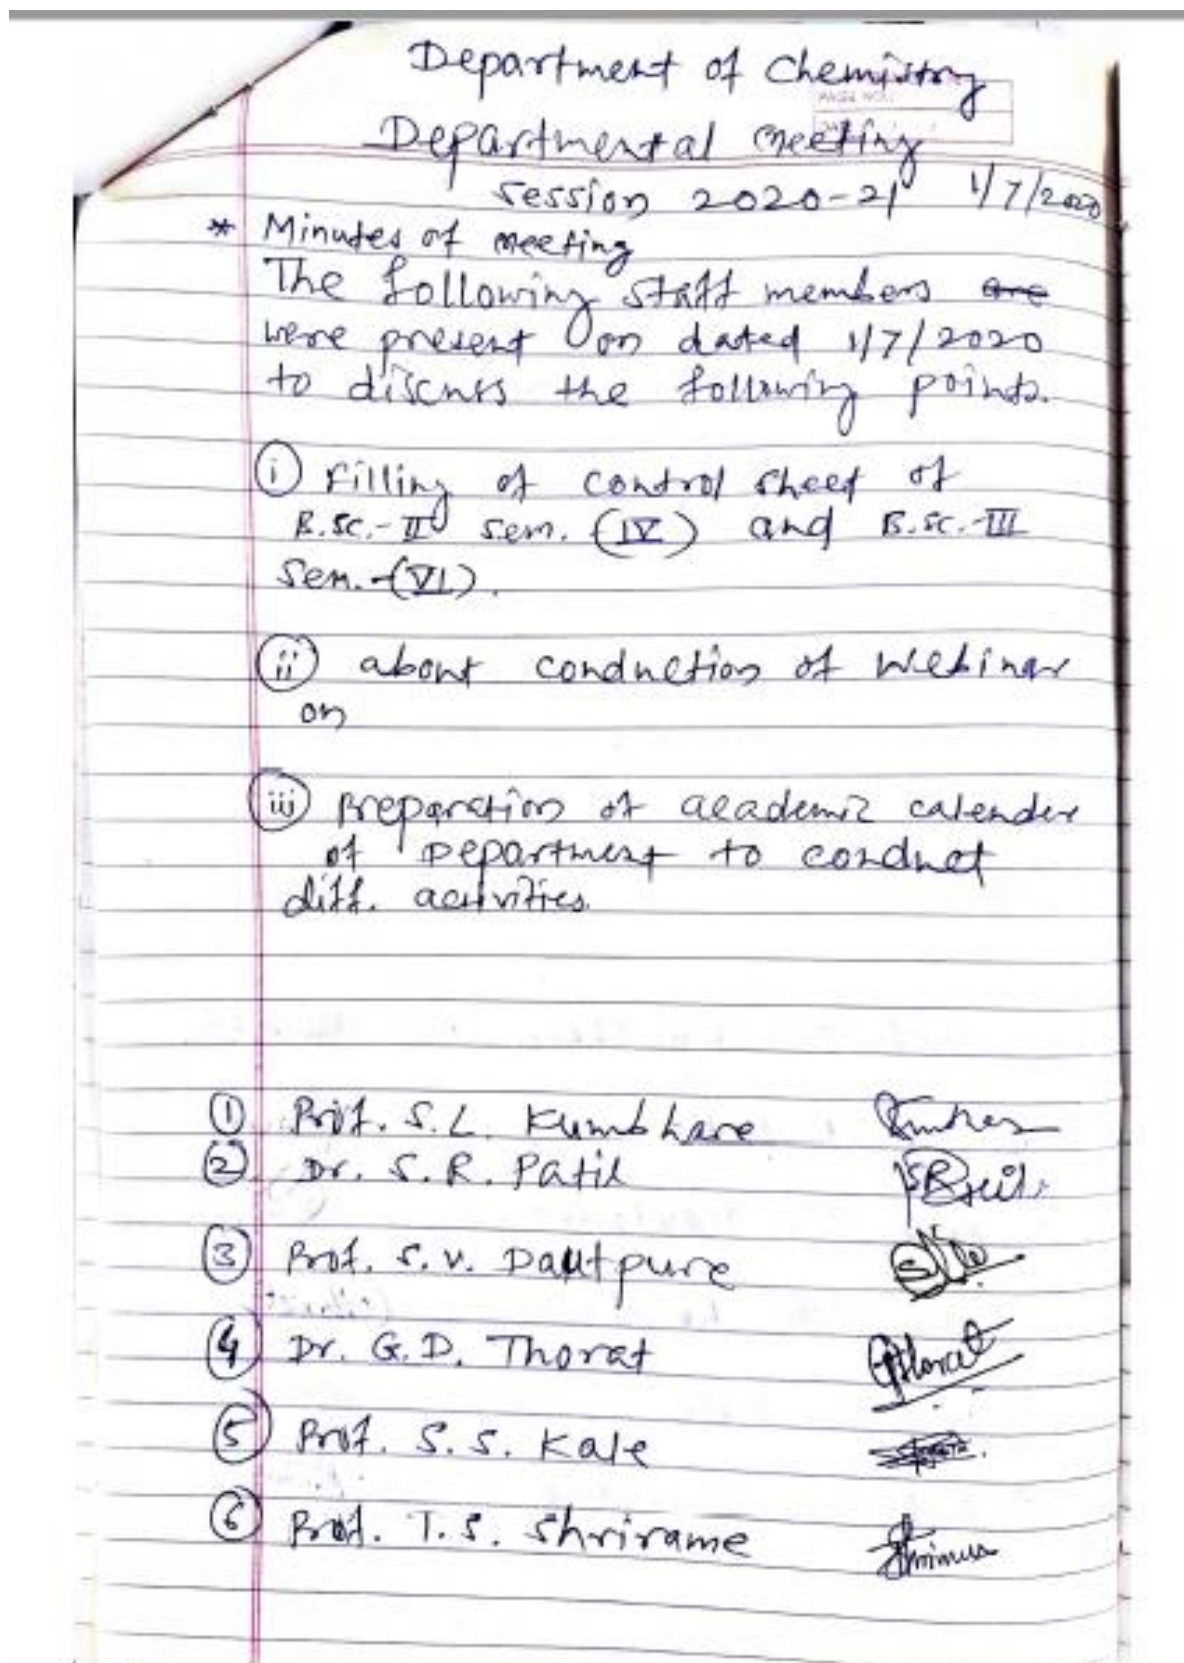 Department of Chemistry
PAGE NO.:
Departmental Meeting
Session 2020-21 1/7/2020
* Minutes of meeting
The following staff members are
were present on dated 1/7/2020
to discuss the following points.
(i) Filling of control sheet of
B.Sc.-II sem. (IV) and B.Sc.-III
Sem.-(VI).
(ii) about conduction of Webinar
on
(iii) Preparation of academic calender
of Department to conduct
diff. activities.
(1) Prof. S.L. Kumbhare
(2) Dr. S.R. Patil
(3) Prof. S.V. Dautpure
(4) Dr. G.D. Thorat
(5) Prof. S.S. Kale
(6) Prof. T.S. Shrirame